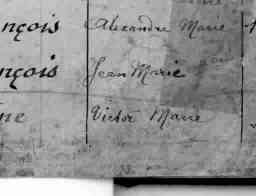 nçois Alexandre Marie
nçois Jean Marie
ne Victor Marie